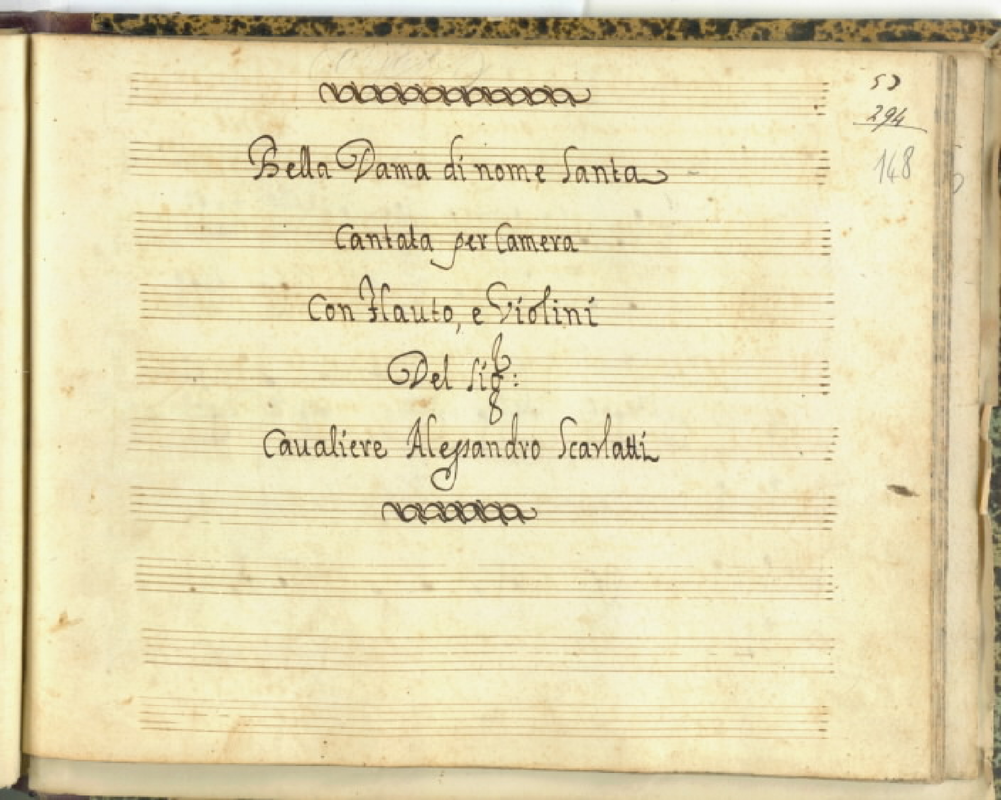 53
294
148
Bella Dama di nome Santa
Cantata per Camera
Con Flauto, e Violini
Del Sig:
Caualiere Alessandro Scarlatti